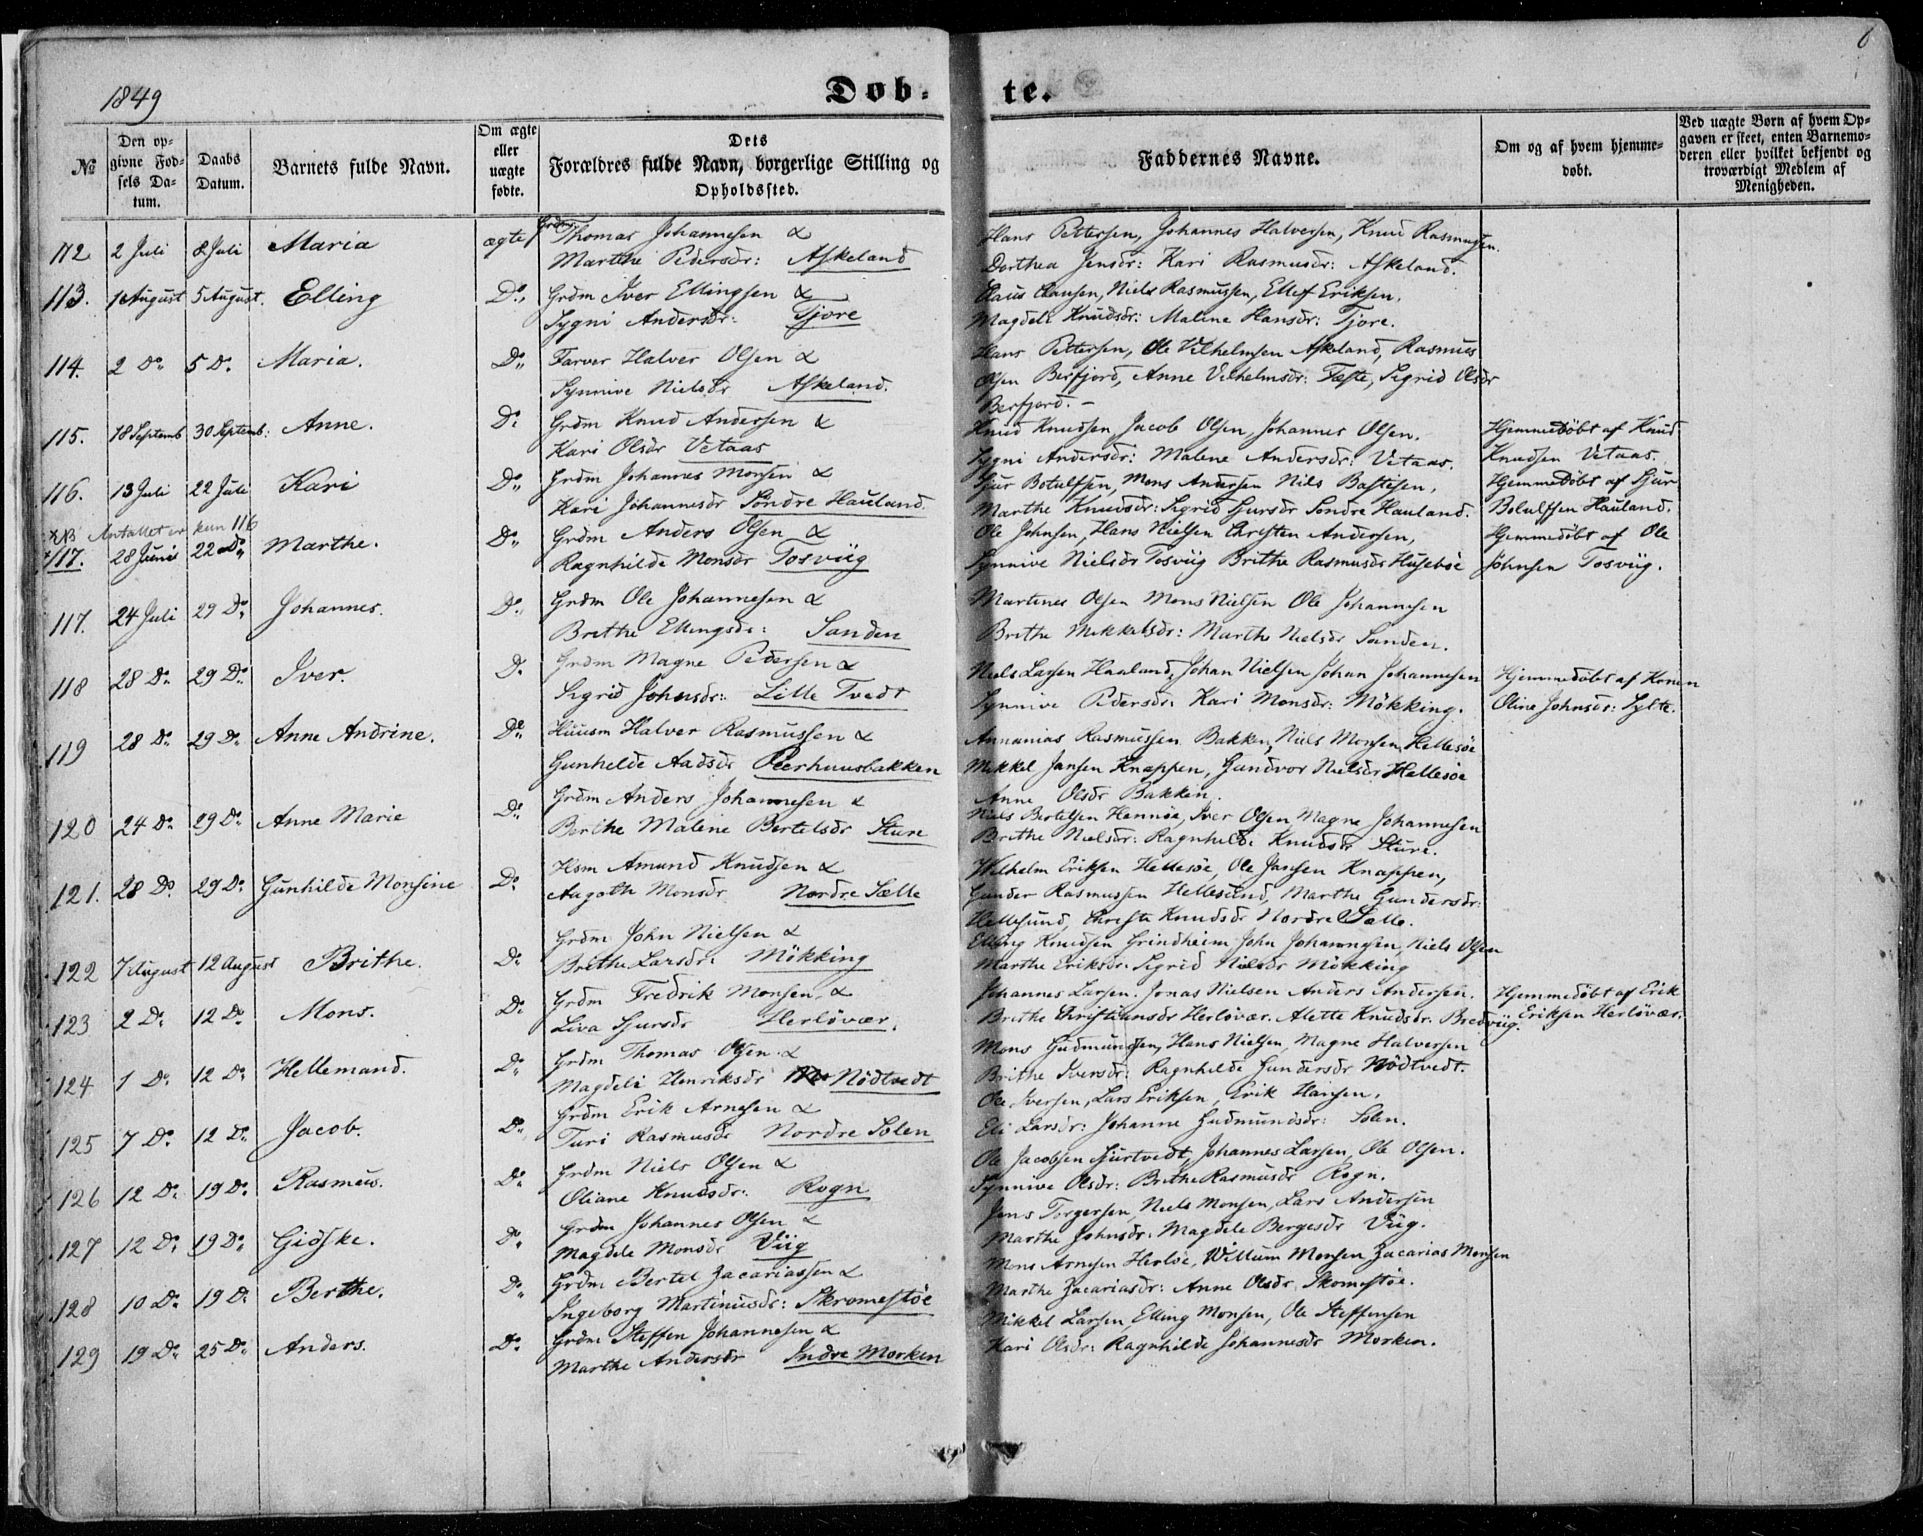 1849
Døb-
te.
6
No
Den opgivne Fødsels Datum.
Daabs Datum.
Barnets fulde Navn.
Om ægte eller uægte fødte.
Dets Forældres fulde Navn, borgerlige Stilling og Opholdssted.
Faddernes Navne.
Om og af hvem hjemmedøbt.
Ved uægte Børn af hvem Opgaven er skeet, enten Barnemoderen eller hvilket bekjendt og troværdigt Medlem af Menigheden.
112 2 Juli 8 Juli Maria ægte Grdm Thomas Johannesen &
Marthe Pedersdr: Askeland
Hans Pettersen, Johannes Halversen, Knud Rasmussen.
Dorthea Jensdr: Kari Rasmusdr: Askeland.
113. 1 August 5 August. Elling Do Grdm Iver Ellingsen &
Sygni Andersdr: Tjore
Claus Clausen, Niels Rasmussen, Ellef Eriksen,
Magdeli Knudsdr: Malene Hansdr: Tjore.
114. 2 Do 5 D. Maria. Do Farver Halver Olsen &
Synnive Nielsdr Askeland.
Hans Pettersen, Ole Vilhelmsen Askeland, Rasmus
Olsen Berfjord, Anne Vilhelmsdr: Tæste, Sigrid Olsdr
Berfjord. -
115. 18 Septemb 30 Septemb: Anne. Do Grdm Knud Andersen &
Kari Olsdr Vetaas
Knud Knudsen, Jacob Olsen, Johannes Olsen.
Sygni Andersdr: Malene Andersdr: Vetaas.
Hjemmedøbt af Knud
Knudsen Vetaas.
116. 13 Juli 22 Juli Kari Do Grdm Johannes Monsen &
Kari Johannesdr Søndre Hauland.
Sjur Botulfsen, Mons Andersen Nils Bastesen,
Marthe Knudsdr: Sigrid Sjursdr Søndre Hauland.
Hjemmedøbt af Sjur
Botulfsen Hauland.
NB Antallet er kun 116
117. 28 Juni 22 Do Marthe. Do Grdm Anders Olsen &
Ragnhilde Monsdr Fosviig
Ole Johnsen, Hans Nielsen Christen Andersen,
Synnive Nielsdr Fosviig Brithe Rasmusdr Husebøe
Hjemmedøbt af Ole
Johnsen Fosviig.
117. 24 Juli 29 Do Johannes. Do Grdm Ole Johannesen &
Brithe Ellingsdr: Sanden
Martines Olsen Mons Nielsen Ole Johannesen
Brithe Mikkelsdr: Marthe Nielsdr Sanden.
118 28 Do 29 Do Iver. Do Grdm Magne Pedersen &
Sigrid Johnsdr: Lille Tvedt
Niels Larsen Haaland, Johan Nielsen Johan Johannesen
Synnive Pedersdr: Kari Monsdr: Møkking.
Hjemmedøbt af Konen
Oline Johnsdr: Sylte.
119 28 Do 29 Do Anne Andrine. Do Huusm Halver Rasmussen &
Gunhelde Aadsdr Peerhuusbakken
Annanias Rasmussen Bakken, Niels Monsen Hellesøe
Mikkel Jansen Knappen, Gundvor Nielsdr Hellesøe
Anne Olsdr Bakken.
120 24 Do 29 Do Anne Marie Do Grdm Anders Johannesen &
Berthe Malene Bertelsdr Sture
Niels Bertelsen Hennøe, Iver Olsen Magne Johannesen
Brithe Nielsdr: Ragnhilde Knudsdr Sture.
121. 28 Do 29 Do Gunhilde Monsine Do Hsm Amund Knudsen &
Aagothe Monsdr Nordre Sælle
Wilhelm Eriksen Hellesøe, Ole Jansen Knappen,
Gunder Rasmussen Hellesund, Marthe Gundersdr:
Hellesund, Christe Knudsdr Nordre Sælle.
122 7 August 12 August Brithe. Do Grdm John Nielsen &
Brithe Larsdr: Møkking
Elling Knudsen Grindheim John Johannesen, Niels Olsen
Marthe Eriksdr: Sigrid Nielsdr Møkking
123 2 Do 12 Do Mons. Do Grdm Fredrik Monsen, &
Liva Sjursdr Herløvær.
Johannes Larsen. Jonas Nielsen Anders Andersen.
Brithe Christiansdr Herløvær. Alette Knudsdr: Bredviig.
Hjemmedøbt af Erik
Eriksen Herløvær.
124 1 Do 12 Do Hellemand. Do Grdm Thomas Olsen &
Magdeli Henriksdr Nødtvedt
Mons Gudmundsen, Hans Nielsen, Magne Halversen
Brithe Iversdr: Ragnhilde Gundersdr Nødtvedt.
125 7 Do 12 Do Jacob. Do Grdm Erik Arnesen &
Turi Rasmusdr Nordre Solen
Ole Iversen, Lars Eriksen, Erik Hansen.
Eli Larsdr: Johanne Gudmundsdr: Solen.
126 12 Do 19 Do Rasmus. Do Grdm Niels Olsen &
Oliane Knudsdr: Rogn
Ole Jacobsen Sjurtvedt, Johannes Larsen, Ole Olsen.
Synnive Olsdr: Brithe Rasmusdr Rogn.
127 12 Do 19 Do Giøske. Do Grdm Johannes Olsen &
Magdele Monsdr Viig
Jens Torgersen, Niels Monsen, Lars Andersen
Marthe Johnsdr: Magdele Bergesdr Viig.
128 10 Do 19 Do Berthe. Do Grdm Bertel Zacariassen &
Ingeborg Martinusdr: Skromestøe
Mons Arnesen Herløe, Willum Monsen, Zacarias Monsen
Marthe Zacariasdr: Anne Olsdr Skomestøe.
129 19 Do 25 Do Anders. Do Grdm Steffen Johannesen &
Marthe Andersdr Indre Morken
Mikkel Larsen, Elling Monsen, Ole Steffensen
Kari Olsdr: Ragnhilde Johannesdr Morken.